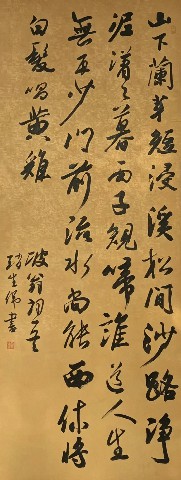 山下蘭芽短浸溪松間沙路淨
泥瀟々暮雨子規啼誰道人生
無再少門前流水尚能西休將
白髮唱黃雞
坡翁詞
書